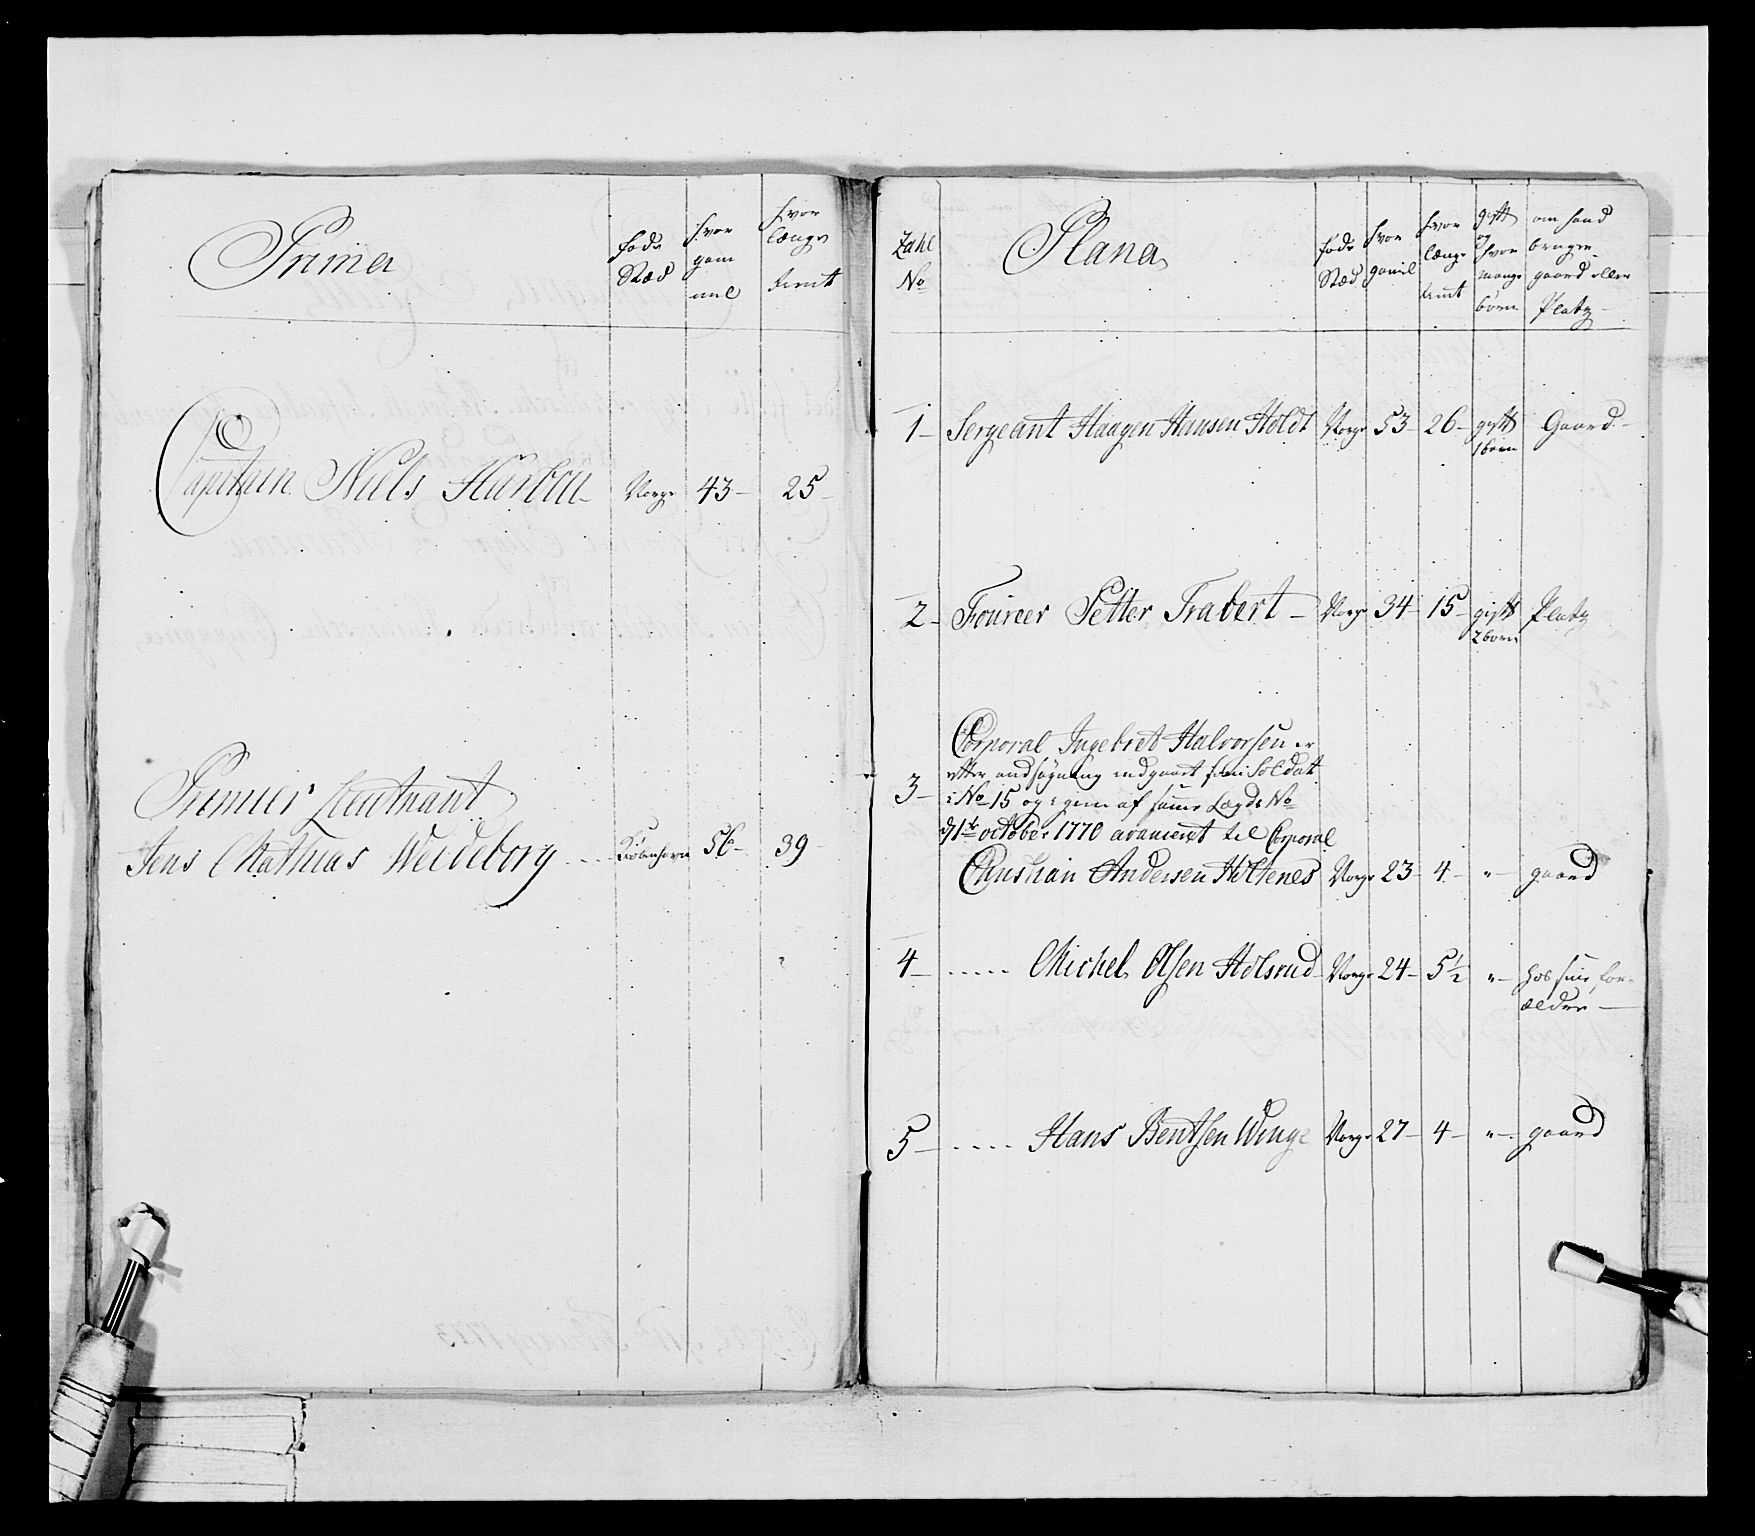 Prima
føde Stæd
hvor gammel
hvor længe tient
Capitain Niels Harboe 
Norge 43 25
Premier Lieutnant
Jens Mathias Weideborg Kiøbenhavn 56 39
Zahl No
Plana
føde Stæd
hvor gamel
hvor længe tient
gift og hvor mange børn
om hand bruger gaard eller Platz
1 Sergeant Haagen Hansen Holdt Norge 53 26 gift 1 børn Gaard
2 Fourier Petter Trabert Norge 34 15 gift 2 børn Platz
Corporal Ingebret Halvorsen er
efter ansøgning indgaaet som Soldat
3 i No 15 og igien af samme Lægds No
d 1te october 1770 avanceret til Corporal
Christian Andersen Holtenes Norge 23 4 " gaard
4 Michel Olsen Holsrud Norge 24 5 1/2 " hos sine for-
ældre
5 Hans Bentsen Winge Norge 27 4 " gaard